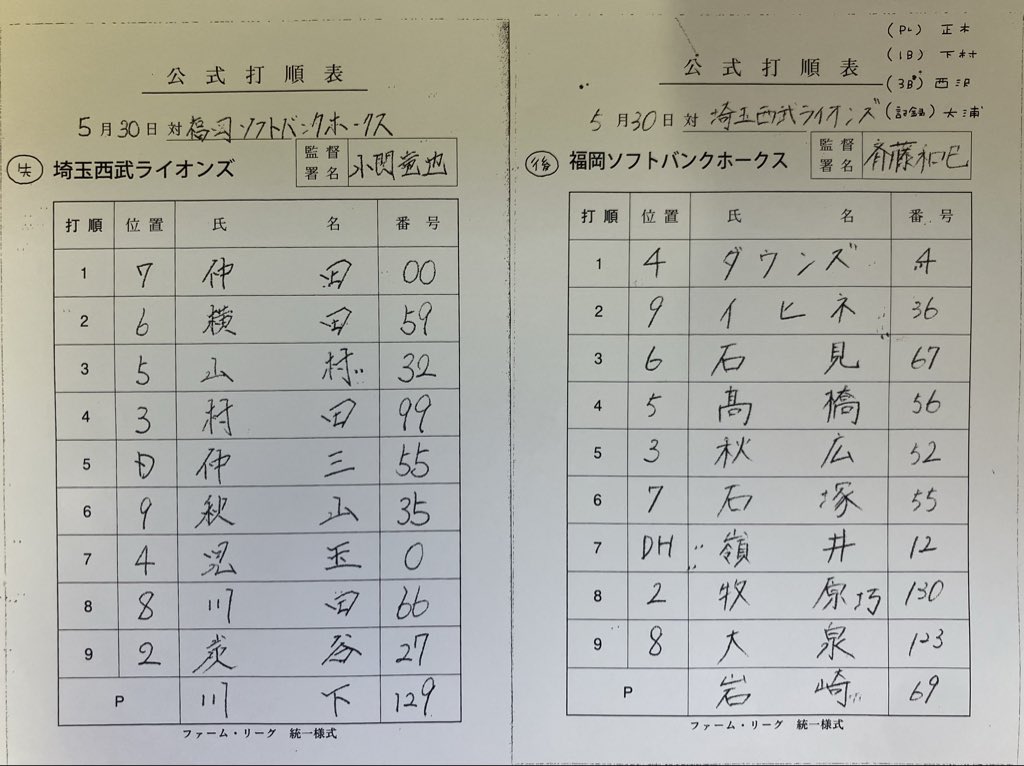 公式打順表
5月30日 対 福岡ソフトバンクホークス
先 埼玉西武ライオンズ 監督署名
打順 位置 氏名 番号
1 7 仲田 00
2 6 横田 59
3 5 山村 32
4 3 村田 99
5 D 仲三 55
6 9 秋山 35
7 4 児玉 0
8 8 川田 66
9 2 炭谷 27
P 川下 129
ファーム・リーグ 統一様式
(PL) 正木
(1B) 下村
(3B) 西沢
(記録) 大浦
公式打順表
5月30日 対 埼玉西武ライオンズ
後 福岡ソフトバンクホークス 監督署名 斉藤和巳
打順 位置 氏名 番号
1 4 ダウンズ 4
2 9 イヒネ 36
3 6 石見 67
4 5 髙橋 56
5 3 秋広 52
6 7 石塚 55
7 DH 嶺井 12
8 2 牧原巧 130
9 8 大泉 123
P 岩崎 69
ファーム・リーグ 統一様式